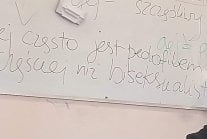 = szczęśliwy
ej często jest pedofilem
gej = p
częściej niż biseksualist